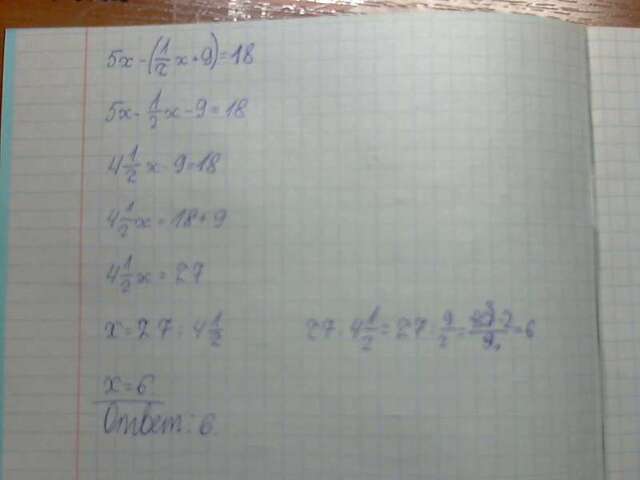 5x - (1/2 x + 9) = 18
5x - 1/2 x - 9 = 18
4 1/2 x - 9 = 18
4 1/2 x = 18 + 9
4 1/2 x = 27
x = 27 : 4 1/2
27 : 4 1/2 = 27 : 9/2 = 27·2/9 = 6
x = 6
Ответ: 6.